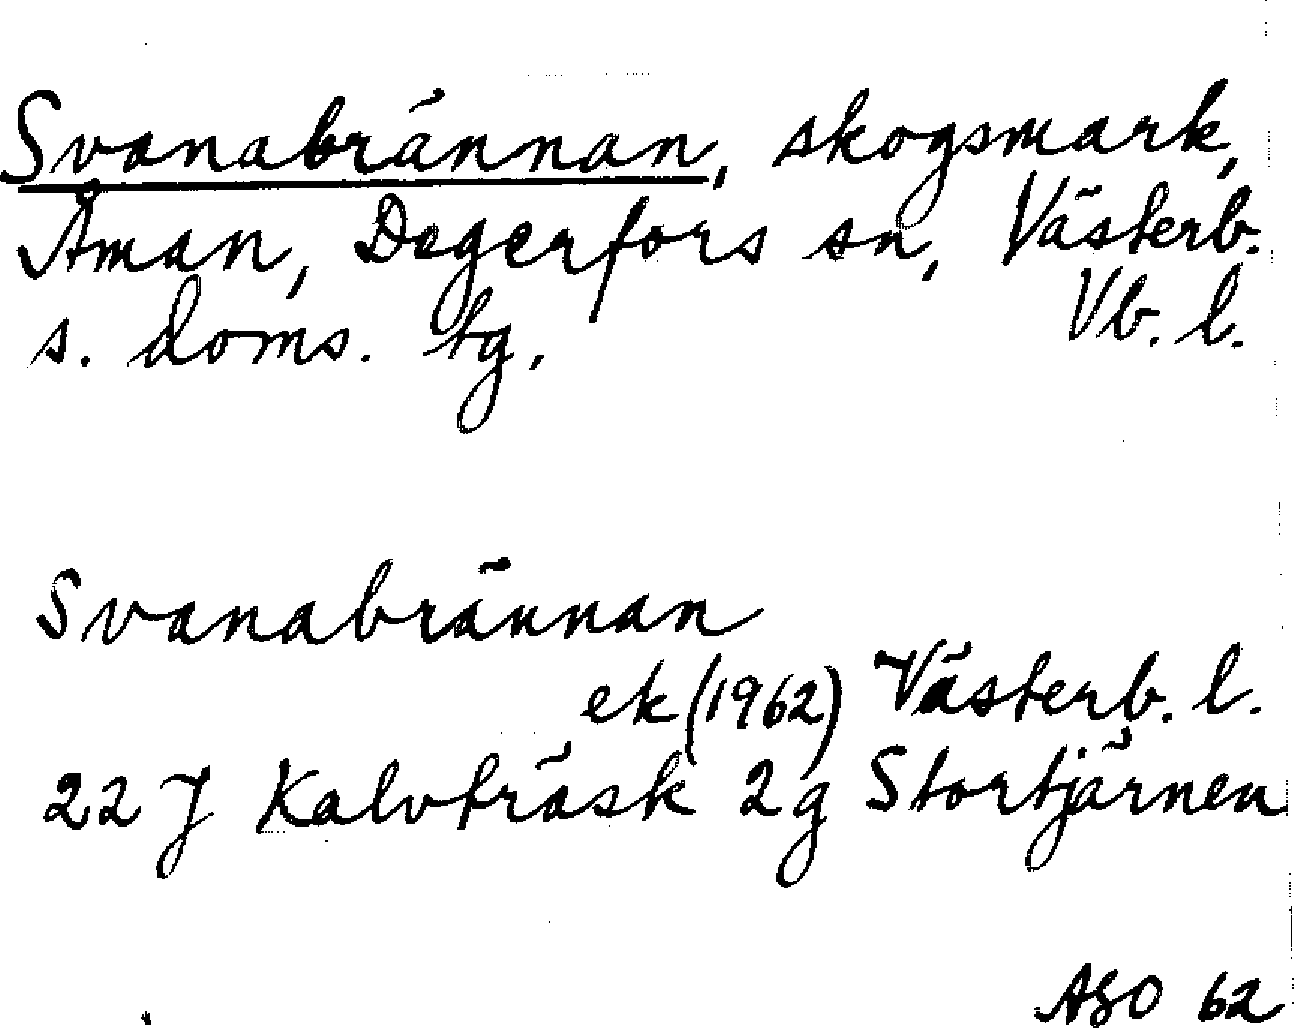 Svanabrännan, skogsmark,
Åman, Degerfors sn, Västerb.
s. doms. tg. Vb. l.
Svanabrännan
ek (1962) Västerb. l.
22 J Kalvträsk 2g Stortjärnen
ASO 62